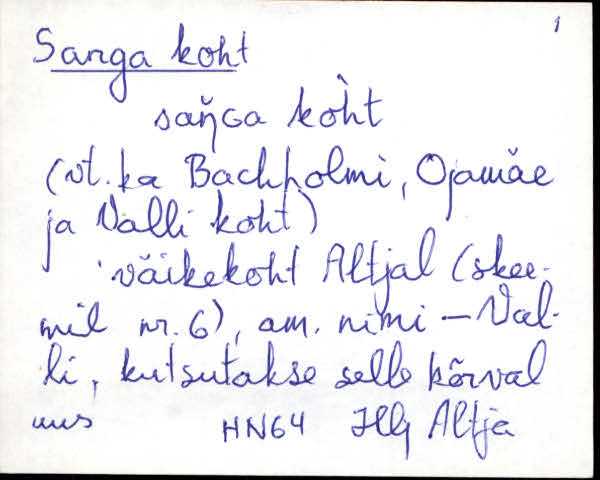 1
Sanga koht
saŋ̆Ga kòht
(vt. ka Bachholmi, Ojamäe
ja Valli koht)
väikekoht Altjal (skee-
mil nr. 6), am. nimi – Val-
li, kutsutakse selle kõrval
HN64 Hlj Altja